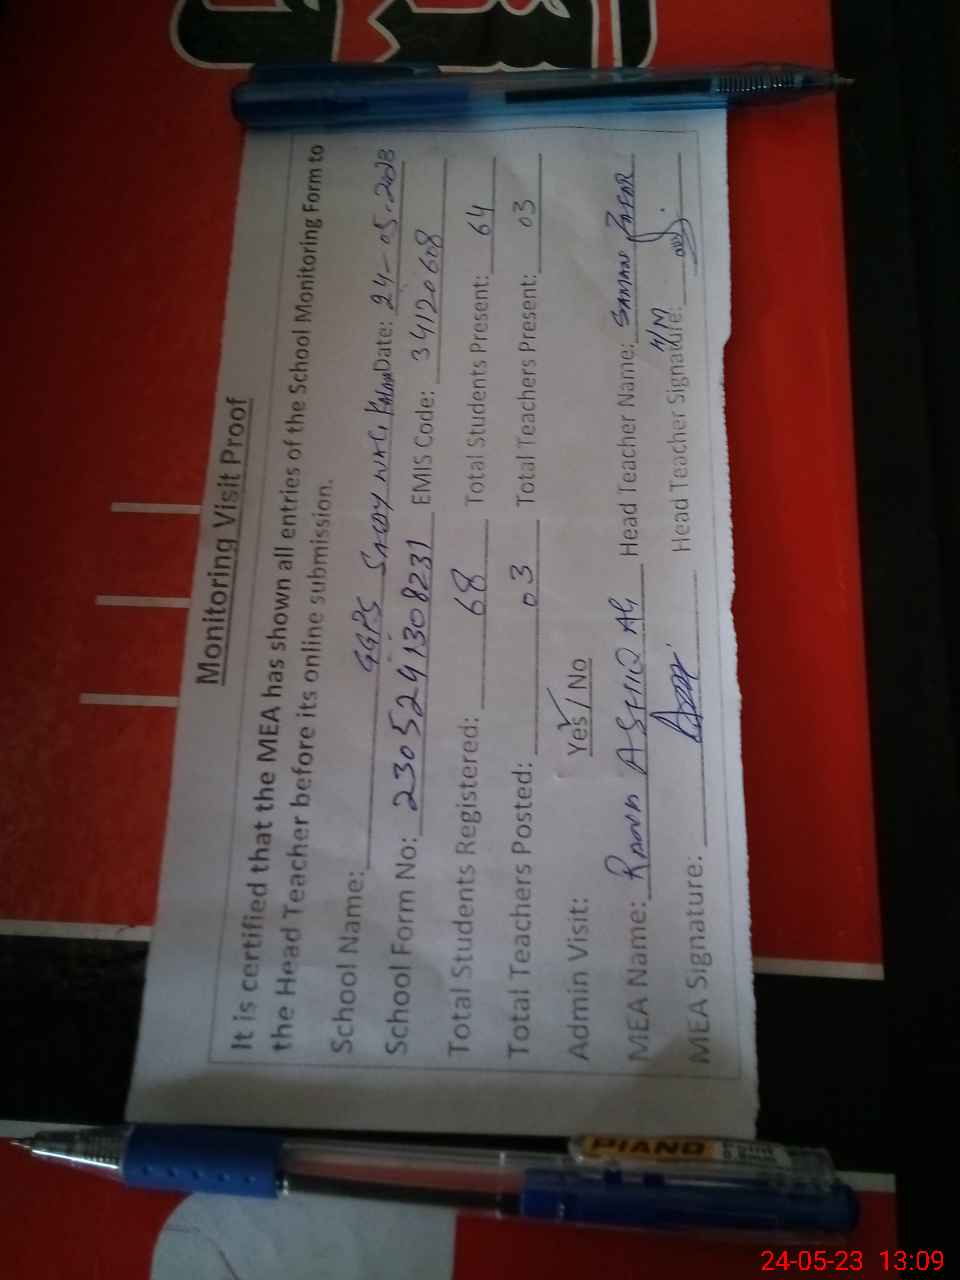 Monitoring Visit Proof
It is certified that the MEA has shown all entries of the School Monitoring Form to
the Head Teacher before its online submission.
School Name: GGPS Date: 24-05-2023
School Form No: 2305241308231 EMIS Code: 34120608
Total Students Registered: 68 Total Students Present: 64
Total Teachers Posted: 03 Total Teachers Present: 03
Admin Visit: Yes / No
MEA Name: ASHIQ Ali Head Teacher Name: SAMAN ZAFAR
MEA Signature: Head Teacher Signature:
PIANO
24-05-23 13:09